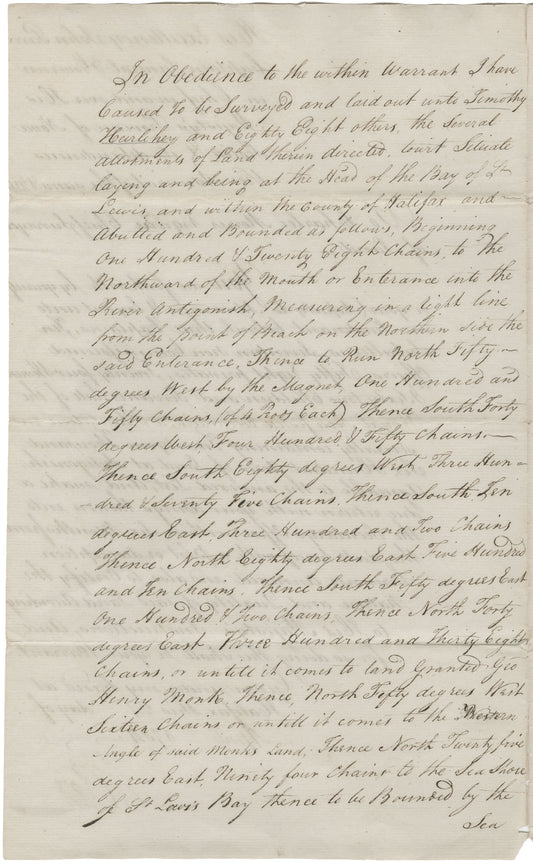 In Obedience to the within Warrant I have
Caused to be Surveyed and laid out unto Timothy
Hurlihey and Eighty Eight others, the Several
allotments of Land therein directed, Scituate
layeing and being at the Head of the Bay of St
Lewis, and within the County of Halifax and
Abutted and Bounded as follows, Beginning
One Hundred & Twenty Eight Chains, to the
Northward of the Mouth or Enterance into the
River Antigonish, Measuring in a light line
from the point of Beach on the Northern Side the
Said Enterance, Thence to Run North Fifty
degrees West by the Magnet, One Hundred and
Fifty Chains, (of 4 Rods Each) Thence South Forty
degrees West Four Hundred & Fifty Chains
Thence South Eighty degrees West, Three Hun-
-dred & Seventy Five Chains, Thence South Ten
degrees East, Three Hundred and Two Chains
Thence North Eighty degrees East Five Hundred
and Ten Chains, Thence South Fifty degrees East
One Hundred & Two Chains, Thence North Forty
degrees East, Three Hundred and Thirty Eight
Chains, or untill it comes to land Granted Geo
Henry Monk, Thence, North Fifty degrees West
Sixteen Chains or untill it comes to the Western
Angle of said Monks Land, Thence North Twenty five
degrees East, Ninity four Chains to the Sea Shore
of St Lewis Bay thence to be Bounded by the
Sea